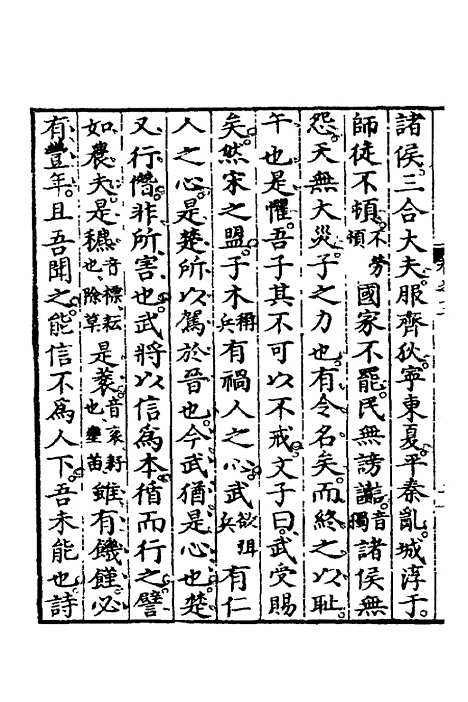 諸侯三合大夫服齊狄寧東夏平秦亂城淳于
師徒不頓不勞頓國家不罷民無謗讟音獨諸侯無
怨天無大災子之力也有令名矣而終之以恥
午也是懼吾子其不可以不戒文子曰武受賜
矣然宋之盟子木稱兵有禍人之心武欲弭兵有仁
人之心是楚所以駕於晉也今武猶是心也楚
又行僭非所害也武將以信爲本循而行之譬
如農夫是穮音標耘也除草是蓘音衮籽也壅苗雖有饑饉必
有豐年且吾聞之能信不爲人下吾未能也詩